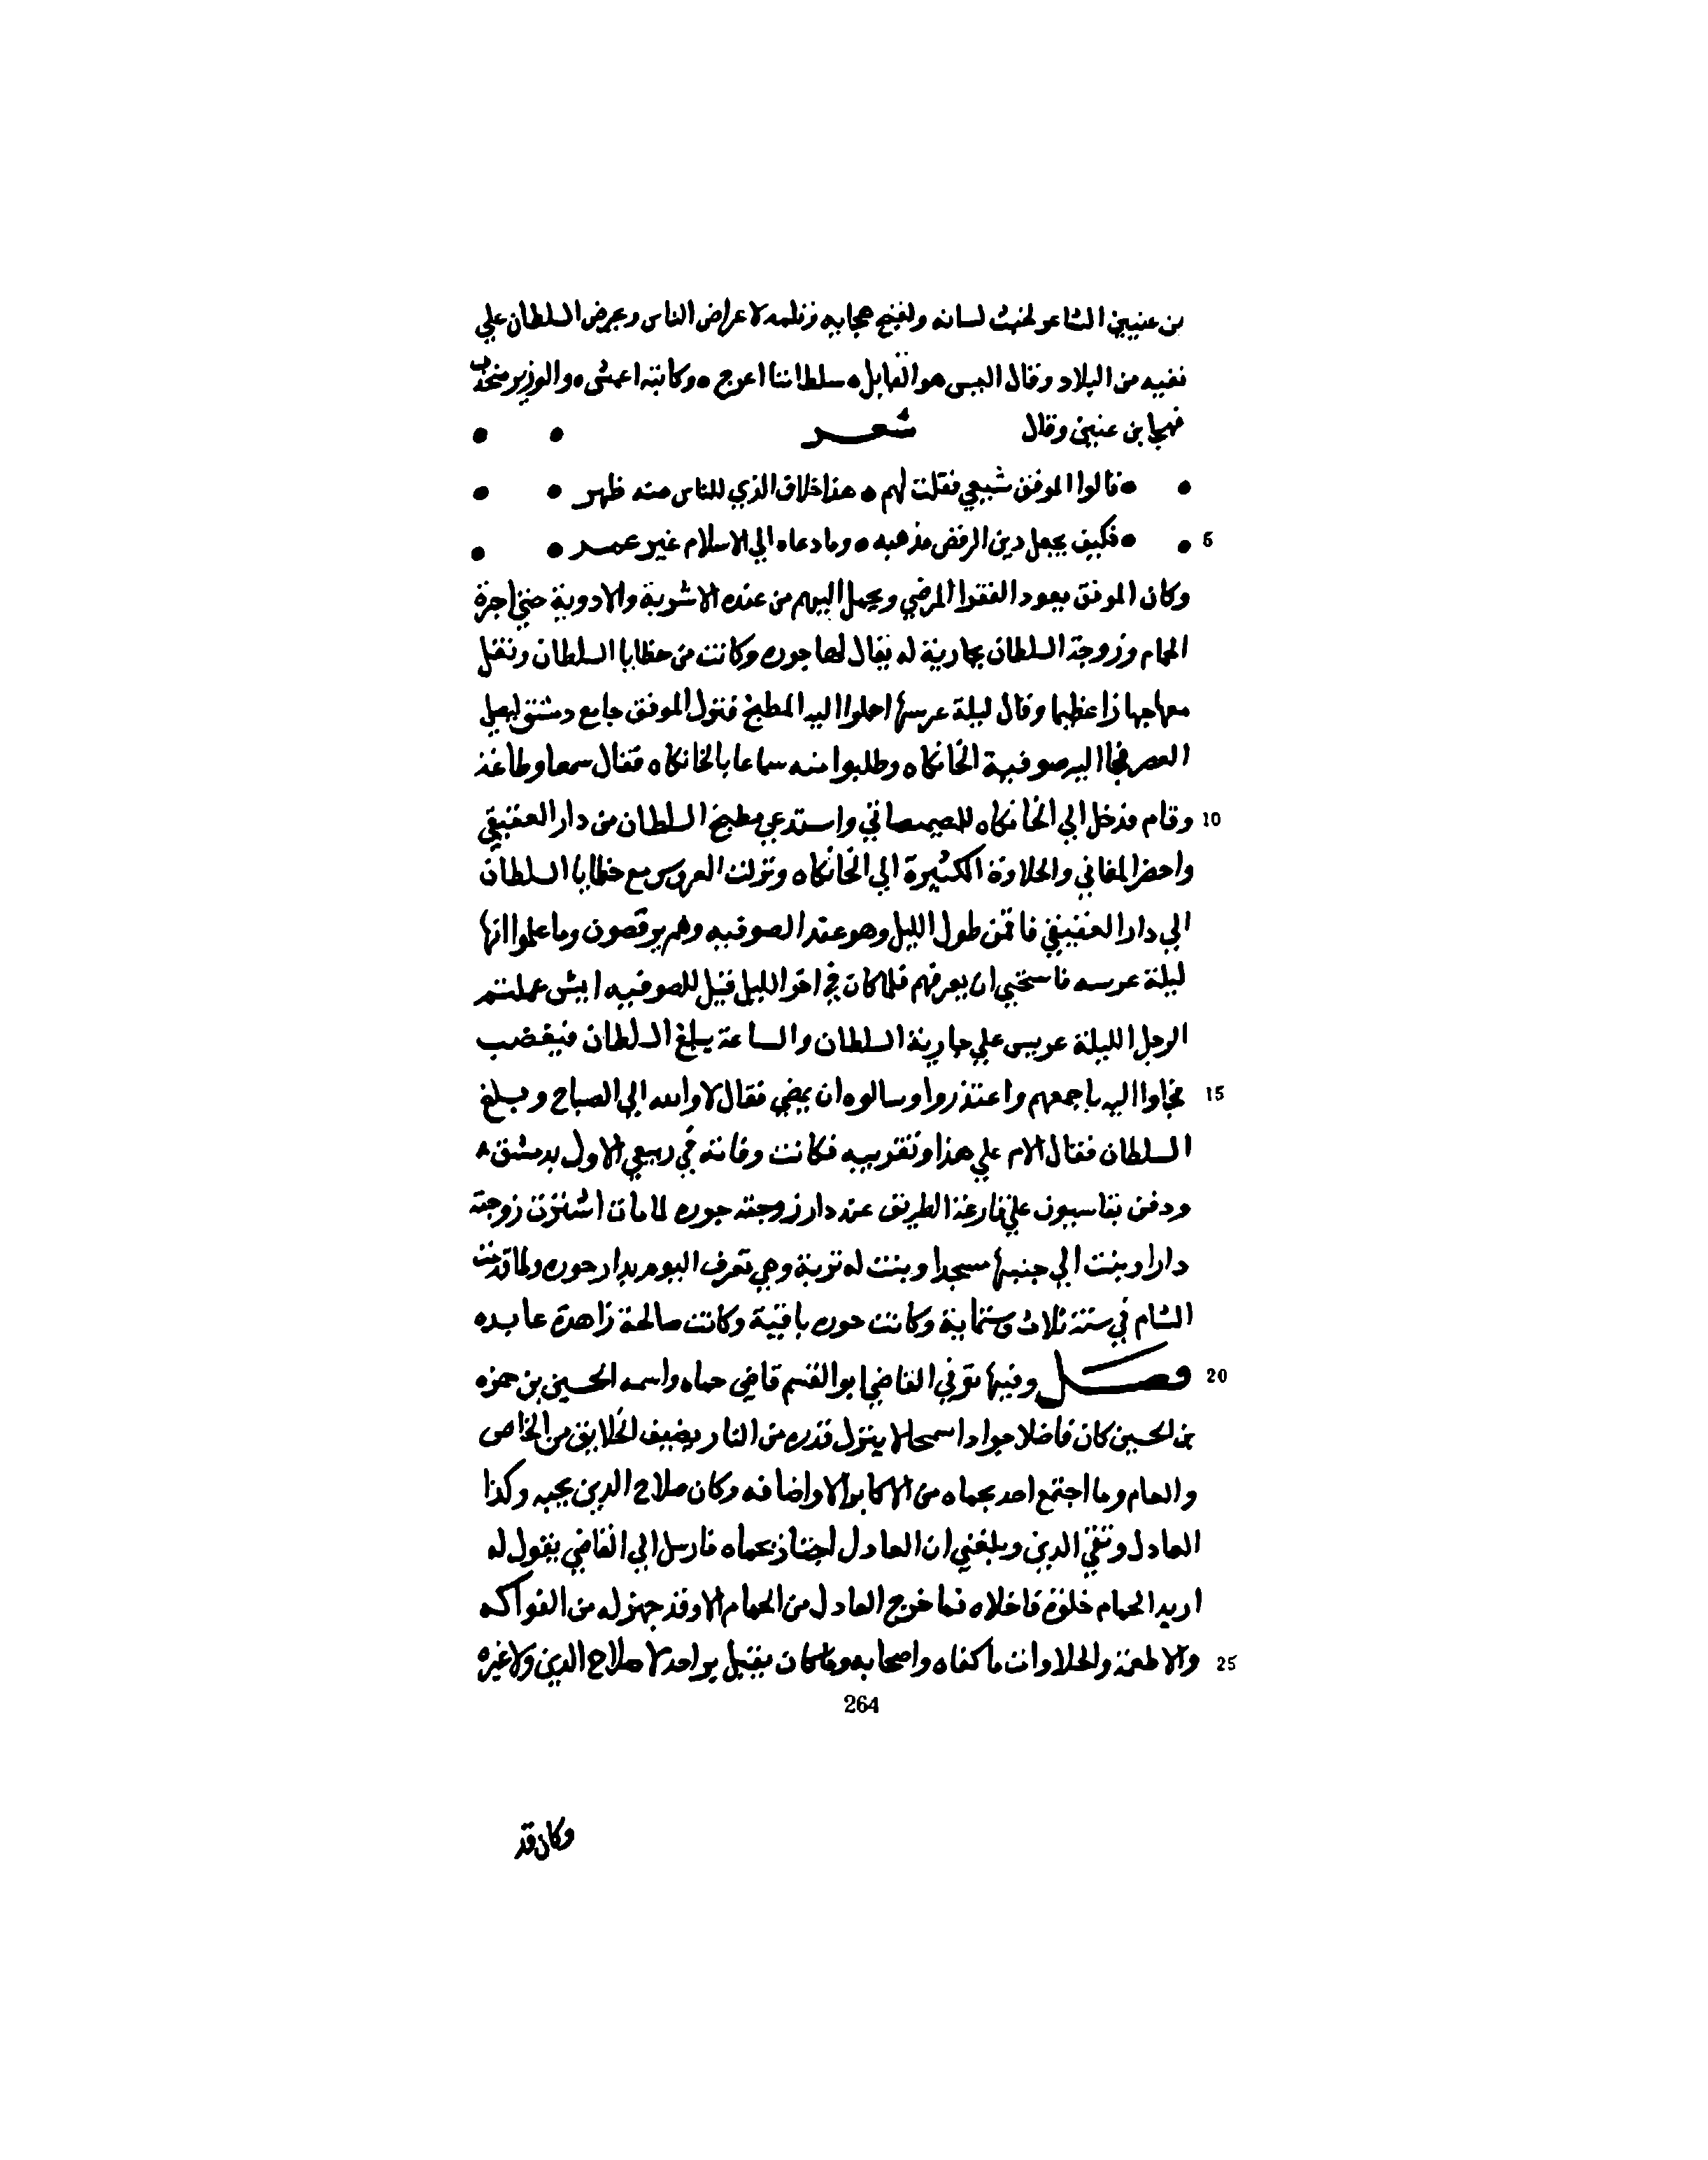 بن عنين الشاعر لخبث لسانه ولقبح هجايه وثلمه لاعراض الناس وحرض السلطان علي
نفيه من البلاد وقال اليس هو القايل ه سلطاننا اعرج ه وكاتبه اعمش ه والوزير منحدب
فهجا بن عنين وقال شعر
ه قالوا الموفق شيعي فقلت لهم ه هذا خلاف الذي للناس منه ظهر
5 ه فكيف يجعل دين الرفض مذهبه ه وما دعاه الي الاسلام غير عمر
وكان الموفق يعود الفقرا المرضي ويحمل اليهم من عنده الاشربة والادوية حتي اجرة
الحمام وزوجة السلطان بجارية له يقال لها جوره وكانت من حظايا السلطان ونقل
معها جهازا عظيما وقال ليلة عرسها احملوا اليه المطبخ فنزل الموفق جامع دمشق ليصلي
العصر فجا اليه صوفية الخانكاه وطلبوا منه سماعا بالخانكاه فقال سمعا وطاعة
10 وقام فدخل الي الخانكاه للصيصاتي واستدعي مطبخ السلطان من دار العقيقي
واحضر المغاني والحلاوة الكثيرة الي الخانكاه ونزلت العروس مع حظايا السلطان
الي دار العقيقي فاقمن طول الليل وهو عند الصوفيه وهم يرقصون وما علموا انها
ليلة عرسه فاستحيي ان يعرفهم فلما كان في اخر الليل قيل للصوفيه ايش عملتم
الرجل الليلة عريس علي جارية السلطان والساعة يبلغ السلطان فيغضب
15 فجاوا اليه باجمعهم واعتذروا وسالوه ان يمضي فقال لا والله الي الصباح وبلغ
السلطان فقال الام علي هذا وتقريبه فكانت وفاته في ربيع الاول بدمشق
ودفن بقاسيون علي قارعة الطريق عند دار زوجته جوره لما مات اشترت زوجته
دارا وبنت الي جنبها مسجدا وبنت له تربة وهي تعرف اليوم بدار حوره ولما قدمت
الشام في سنة ثلاث وستماية وكانت حوره باقية وكانت صالحة زاهدة عابده
20 فصل وفيها توفي القاضي ابو القسم قاضي حماه واسمه الحسين بن حمزه
بن الحسين كان فاضلا جوادا سمحا لا ينزل قدره من النار يضيف الخلايق من الخاص
والعام وما اجتمع احد بحماه من الاكابر الا واضافه وكان صلاح الدين يحبه وكذا
العادل وتقي الدين وبلغني ان العادل اجتاز بحماه فارسل الي القاضي يقول له
اريد الحمام خلوة فاخلاه فما خرج العادل من الحمام الا وقد جهز له من الفواكه
25 والاطعمة والحلاوات ما كفاه واصحابه وما كان يقبل بر احد لا صلاح الدين ولا غيره
264
وكان قد